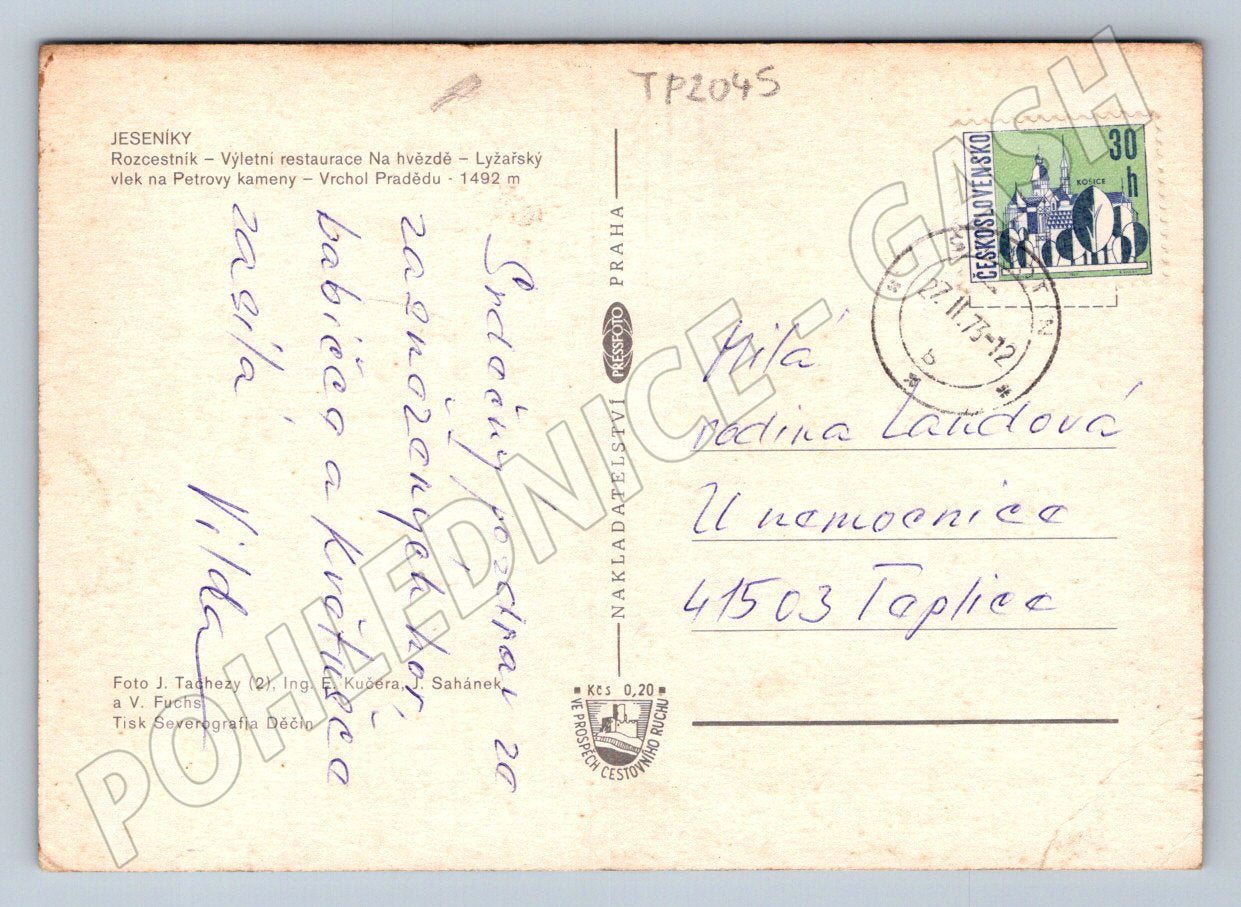 TP2045
JESENÍKY
Rozcestník – Výletní restaurace Na hvězdě – Lyžařský
vlek na Petrovy kameny – Vrchol Pradědu - 1492 m
Srdečný pozdrav ze
babička a Květušča
Vilda
NAKLADATELSTVÍ PRESSFOTO PRAHA
ČESKOSLOVENSKO
30
h
KOŠICE
27.II.73-12
b
Milá
rodina Landová
U nemocnice
41503 Teplice
Foto J. Tachezy (2), Ing. E. Kučera, J. Sahánek
a V. Fuchs
Tisk Severografia Děčín
Kčs 0,20
VE PROSPĚCH CESTOVNÍHO RUCHU
POHLEDNICE - GASH